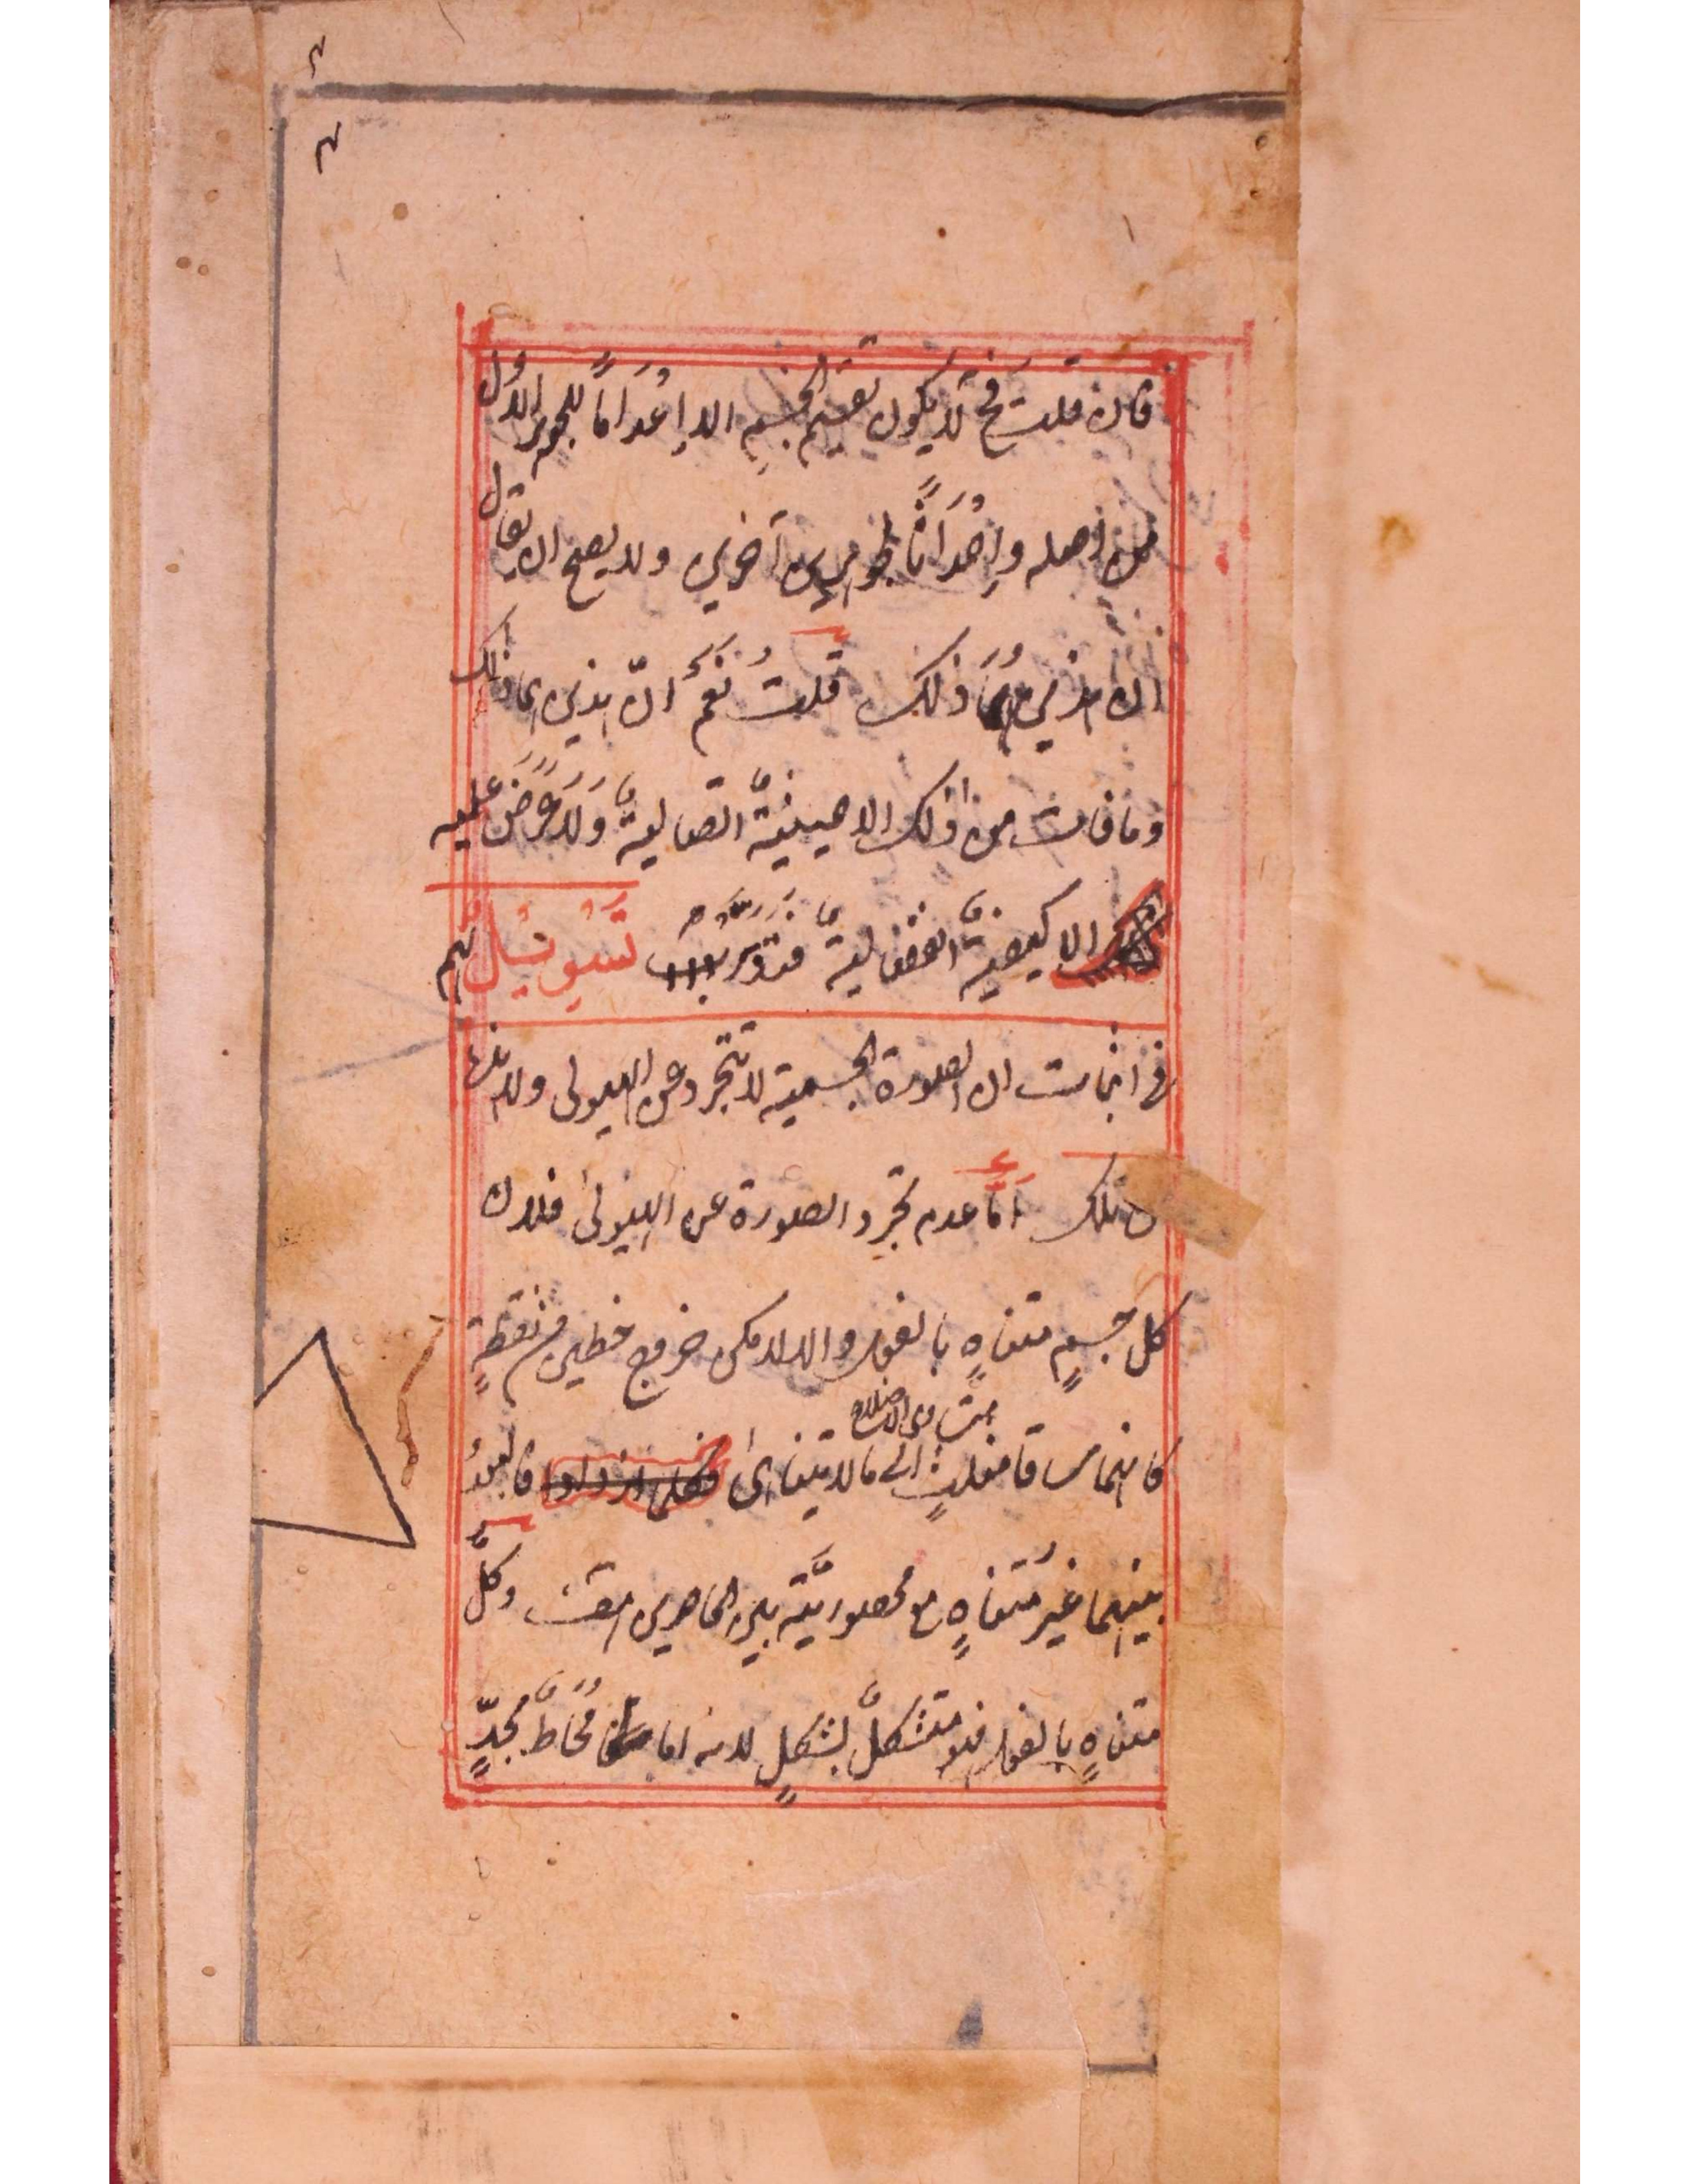 فان قلت فح لا يكون تقسيم الجسم الا إِعْدَامًا للجوهر الاول
من اصله وإِحْدَاثًا لجوهرين آخرين ولا يصح ان يقال
ان هذين هُمَا ذلك قلتُ نَعَمْ انّ هذين هما ذلك
وما فات من ذلك الا هيئيةٌ اتصالية وَلَا عَرَضَ عليه
الا كيفيةٌ انفصاليةٌ فتدَبَّرْ تَسْوِيْلٌ لهم
في اثبات ان الصورة الجسمية لا تتجرد عن الهيولى ولا
تلك أمّا عدم تجرد الصورة عن الهيولى فلان
كل جسمٍ متناهٍ بالفعل والا لامكن خروج خطين من نقطةٍ
كانهما ساقا مثلثٍ متساوى الاضلاع الى ما لا يتناهى فالبعدُ
بينهما غيرُ متناهٍ مع محصوريَّته بين الحاصرين هف وكلُّ
متناهٍ بالفعل فهو متشكلٌ بشكلٍ لانه اما مُحَاطٌ بحدٍّ